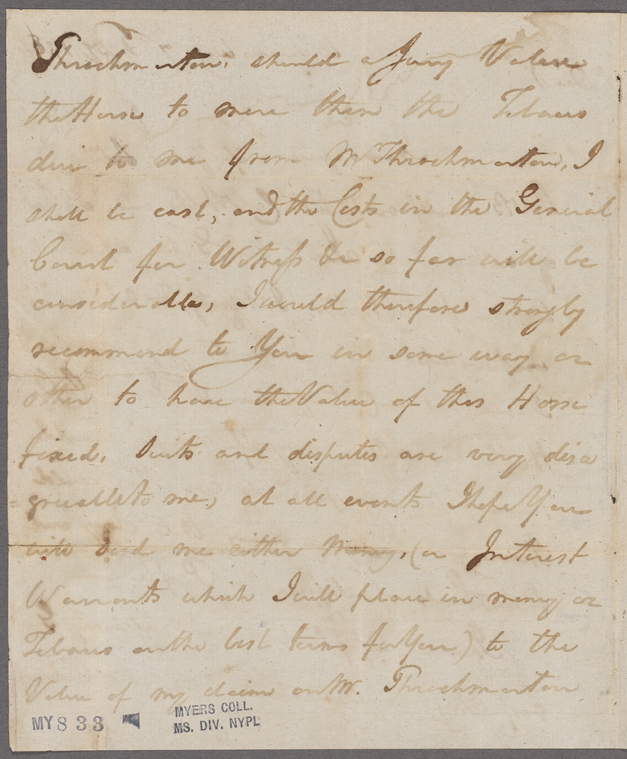 Throckmorton, should a Jury Value
the Horse to more then the Tobacco
due to me from Mr Throckmorton, I
shall be cast, and the Costs in the General
Court for Witness &c so far will be
considerable, I would therefore strongly
recommend to You in some way or
other to have the Value of this Horse
fixed. Suits and disputes are very disa
=greeable to me, at all events I hope You
will send me either Money, (or Interest
Warrants which I will place in money or
Tobacco on the best terms for You) to the
Value of my claim on Mr. Throckmorton
MY 833
MYERS COLL.
MS. DIV. NYPL